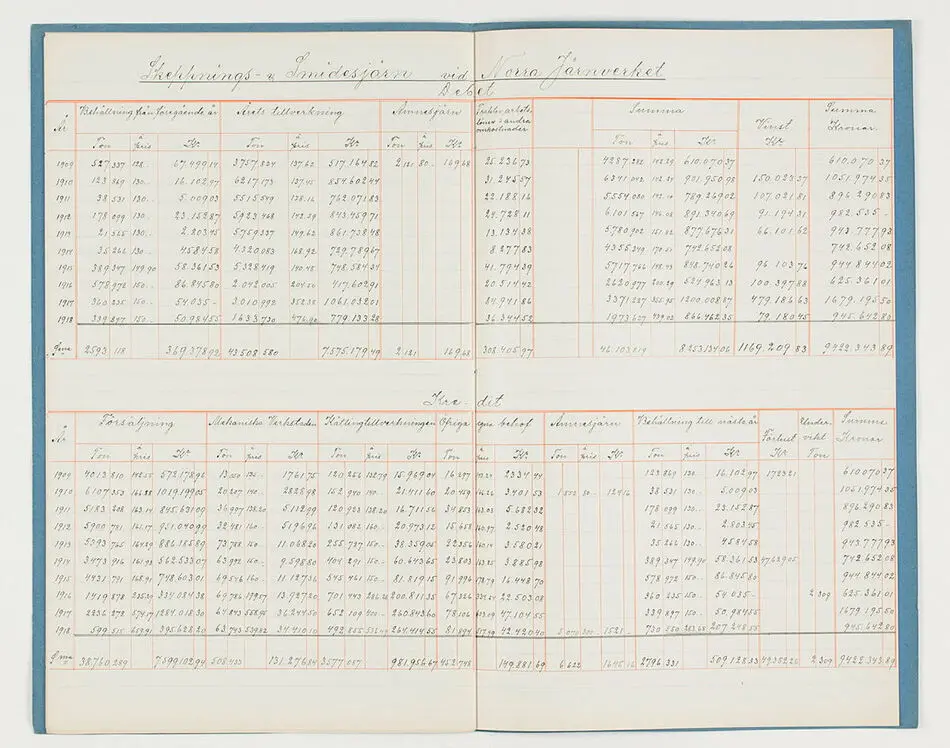 Skeppnings- & Smidesjärn vid Norra Järnverket
Debet
År Behållning från föregående år Årets tillverkning Ämnesjärn Summa Vinst Summa Kronor
Ton à pris Kr Ton à pris Kr Ton à pris Kr Ton à pris Kr Kr
1909 527 337 128 67.499 14 3757.824 137.62 517.164 82 2.121 80.- 169.68 25.236 73 4287 282 142.29 610.070 37 610.070 37
1910 123 869 130.- 16.102 97 6217 173 137.45 854.602 44 31.245 57 6341 042 142.24 901.950 98 150.023 37 1051.974 35
1911 38 531 130.- 5.009 03 5515 549 138.16 762.071 83 22.188 16 5554 080 142.10 789.269 02 107.021 81 896.290 83
1912 178 099 130.- 23.152 87 5923 468 142.39 843.459 71 24.728 11 6101 567 146.08 891.340 69 91.194 31 982.535 -
1913 21 565 130.- 2.803 45 5759 337 149.62 861.738 48 13.134 38 5780 902 151.82 877.676 31 66.101 62 943.777 93
1914 35 262 130.- 4.584 58 4320 083 168.92 729.789 67 8.277 83 4355 349 170.51 742.652 08 742.652 08
1915 389 347 149.90 58.361 53 5328 419 140.48 748.584 34 41.794 39 5717 766 148.43 848.740 26 96.103 76 944.844 02
1916 578 972 150.- 86.845 80 2.042 005 204.50 417.602 91 20.514 42 2620 977 200.29 524.963 13 100.397 88 625.361 01
1917 360 235 150.- 54.035 - 3.010 992 352.38 1061.032 01 84.941 86 3371 227 355.95 1200.008 87 479.186 63 1679.195 50
1918 339 897 150.- 50.984 55 1633 730 476.90 779.133 28 36.344 52 1973 627 439.02 866.462 35 79.180 45 945.642 80
S:ma 2593 118 369.378 92 43.508 580 7.575.179 49 2.121 169.68 308.405 97 46.103 819 8.253.134 06 1169.209 83 9422.343 89
Kredit
År Försäljning Mekaniska Verkstaden Källingtillverkningen Öfriga egna behof Ämnesjärn Behållning till nästa år Förlust Undervikt Summa Kronor
Ton à pris Kr Ton à pris Kr Ton à pris Kr Ton Kr Ton à pris Kr Ton à pris Kr Kr Ton
1909 4013 810 142.55 572.178 92 1761 75 15.969 04 16 277 2334 44 123 869 130.- 16.102 97 1723 21 610.070 37
1910 6107 353 1019.199 05 20.207 140.- 2828 98 152 940 140.- 21.411 60 20.459 3401 53 38 531 130.- 5.009 03 1051.974 35
1911 5183 208 163.14 845.631 09 36.997 138.20 5.112 99 120.923 138.20 16.711 56 34 853 5.682 32 178 099 130.- 23.152 87 896.290 83
1912 5900 781 161.17 951.040 99 32.481 160.- 5196 96 131.082 160.- 20.973 12 15.658 2.520 48 21 565 130.- 2.803 45 982.535 -
1913 5393 765 886.185 89 73.788 150.- 11.068 20 255.727 150.- 38.359 05 22.356 3.580 21 35 262 130.- 4584 58 943.777 93
1914 3473 916 161.93 562.533 07 63.992 150.- 9.598 80 404 291 150.- 60.643 65 23.803 3.885 98 389 347 149.90 58.361 53 47.629 05 742.652 08
1915 4431 791 168.91 748.603 01 11.127 36 545 461 150.- 81.819 15 91.996 16.448 70 578 972 150.- 86.845 80 944.844 02
1916 1419 878 334.084 38 13.927 20 701 443 200.811 35 67 326 22.503 08 360 235 150.- 54.035 - 2 309 625.361 01
1917 2236 272 574.17 1284.018 30 36.244 50 652.109 400.- 260.843 60 78.106 47.104 55 339 897 150.- 50.984 55 1679.195 50
1918 599.515 659.91 395.628 20 63.743 539.82 34.410 10 492.855 264.414 55 81.894 42.420 40 5.070 300 1521 730 550 283.68 207.248 55 945.642 80
S:ma 38.760 289 7.599.102 94 508.433 131.276 84 3.577.087 981.956 67 452.748 149.881 69 6 622 1645 16 2796.331 509.128 33 49.352 26 2 309 9422.343 89